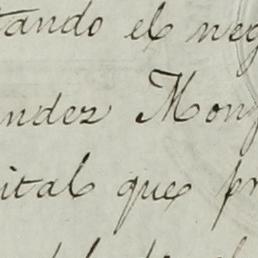 tando el neg
ndez Mon
ital que pr